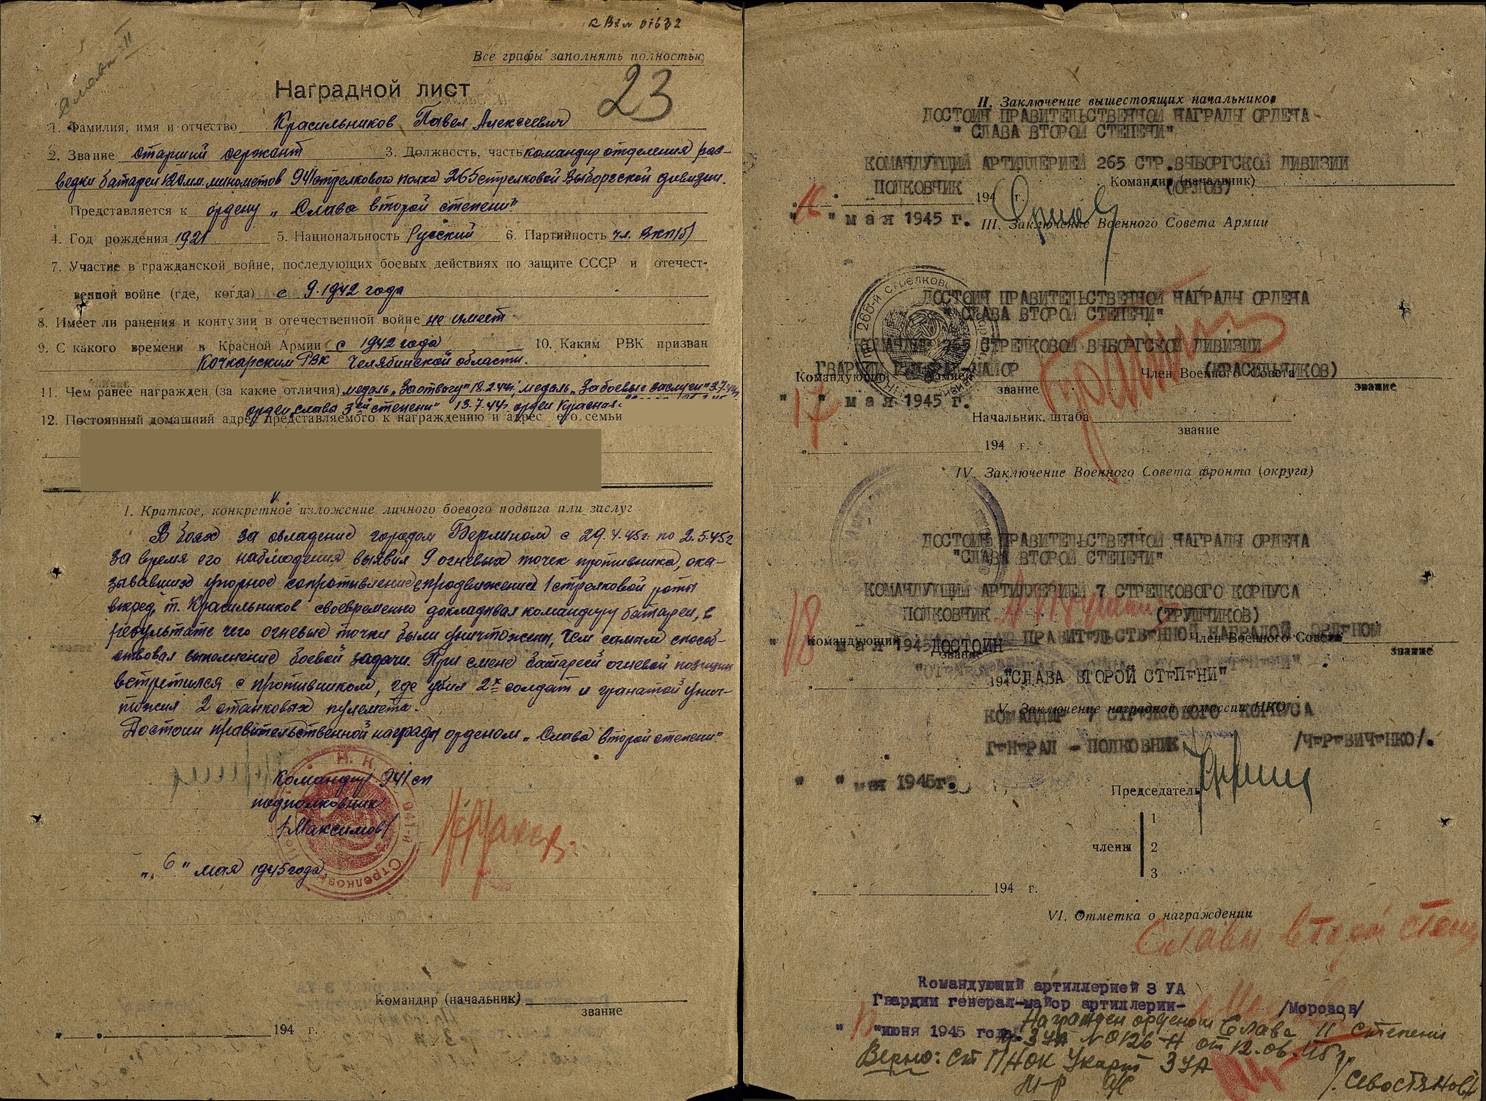 Слава II
Все графы заполнять полностью
Наградной лист
23
1. Фамилия, имя и отчество Красильников Павел Алексеевич
2. Звание старший сержант 3. Должность, часть командир отделения раз-
ведки батареи 120 мм. минометов 941 стрелкового полка 265 стрелковой Выборгской дивизии.
Представляется к ордену „Слава второй степени"
4. Год рождения 1921 5. Национальность Русский 6. Партийность чл. ВКП(б)
7. Участие в гражданской войне, последующих боевых действиях по защите СССР и отечест-
венной войне (где, когда) с 9.1942 года
8. Имеет ли ранения и контузии в отечественной войне не имеет
9. С какого времени в Красной Армии с 1942 года 10. Каким РВК призван
Кочкарским РВК Челябинской области.
11. Чем ранее награжден (за какие отличия) медаль „За отвагу" 18.2.44г, медаль „За боевые заслуги"
орден „Слава 3ей степени" 13.7.44г орден Красная
12. Постоянный домашний адрес представляемого к награждению и адрес его семьи
I. Краткое, конкретное изложение личного боевого подвига или заслуг
В боях за овладение городом Берлином с 29.4.45г. по 2.5.45г
за время его наблюдения выявил 9 огневых точек противника, ока-
зывавших упорное сопротивление продвижению 1 стрелковой роты
вперед, т. Красильников своевременно докладывал командиру батареи, в
результате чего огневые точки были уничтожены, чем самым способ-
ствовал выполнению боевой задачи. При смене батареей огневой позиции
встретился с противником, где убил 2х солдат и гранатой унич-
тожил 2 станковых пулемета.
Достоин правительственной награды орденом „Слава второй степени"
Командир 941 сп
подполковник
/Максимов/
„6" мая 1945 года
Командир (начальник)
звание
194 г.
II. Заключение вышестоящих начальников
ДОСТОИН ПРАВИТЕЛЬСТВЕННОЙ НАГРАДЫ ОРДЕНА -
"СЛАВА ВТОРОЙ СТЕПЕНИ"
КОМАНДУЮЩИЙ АРТИЛЛЕРИЕЙ 265 СТР.ВЫБОРГСКОЙ ДИВИЗИИ
ПОЛКОВНИК 194 г. Командир (начальник) (ОРЛОВ)
" " мая 1945 г.
III. Заключение Военного Совета Армии
ДОСТОИН ПРАВИТЕЛЬСТВЕННОЙ НАГРАДЫ ОРДЕНА
"СЛАВА ВТОРОЙ СТЕПЕНИ"
КОМАНДИР 265 СТРЕЛКОВОЙ ВЫБОРГСКОЙ ДИВИЗИИ
ГВАРДИИ ГЕНЕРАЛ-МАЙОР (КРАСИЛЬНИКОВ)
Командующий звание Член Военного Совета звание
"17" мая 1945 г.
Начальник штаба
звание
194 г.
IV. Заключение Военного Совета фронта (округа)
ДОСТОИН ПРАВИТЕЛЬСТВЕННОЙ НАГРАДЫ ОРДЕНА
"СЛАВА ВТОРОЙ СТЕПЕНИ"
КОМАНДУЮЩИЙ АРТИЛЛЕРИЕЙ 7 СТРЕЛКОВОГО КОРПУСА
ПОЛКОВНИК (ТРУДНИКОВ)
"18" мая 1945
Командующий звание Член Военного Совета звание
ДОСТОИН ПРАВИТЕЛЬСТВЕННОЙ НАГРАДЫ ОРДЕНОМ
"СЛАВА ВТОРОЙ СТЕПЕНИ"
194
V. Заключение наградной комиссии НКО
КОМАНДИР 7 СТРЕЛКОВОГО КОРПУСА
ГЕНЕРАЛ - ПОЛКОВНИК /ЧЕРЕВИЧЕНКО/.
" " мая 1945г.
Председатель
члены
1
2
3
194 г.
VI. Отметка о награждении
Славы второй степ
Командующий артиллерией 3 УА
Гвардии генерал-майор артиллерии- /Морозов/
" "июня 1945 года.
Награжден орденом Слава II степени
пр. 3УА №0126-Н от 12.06.45г.
Верно: Ст П/НОК Укарт 3УА
М-р
/Севостьянов/